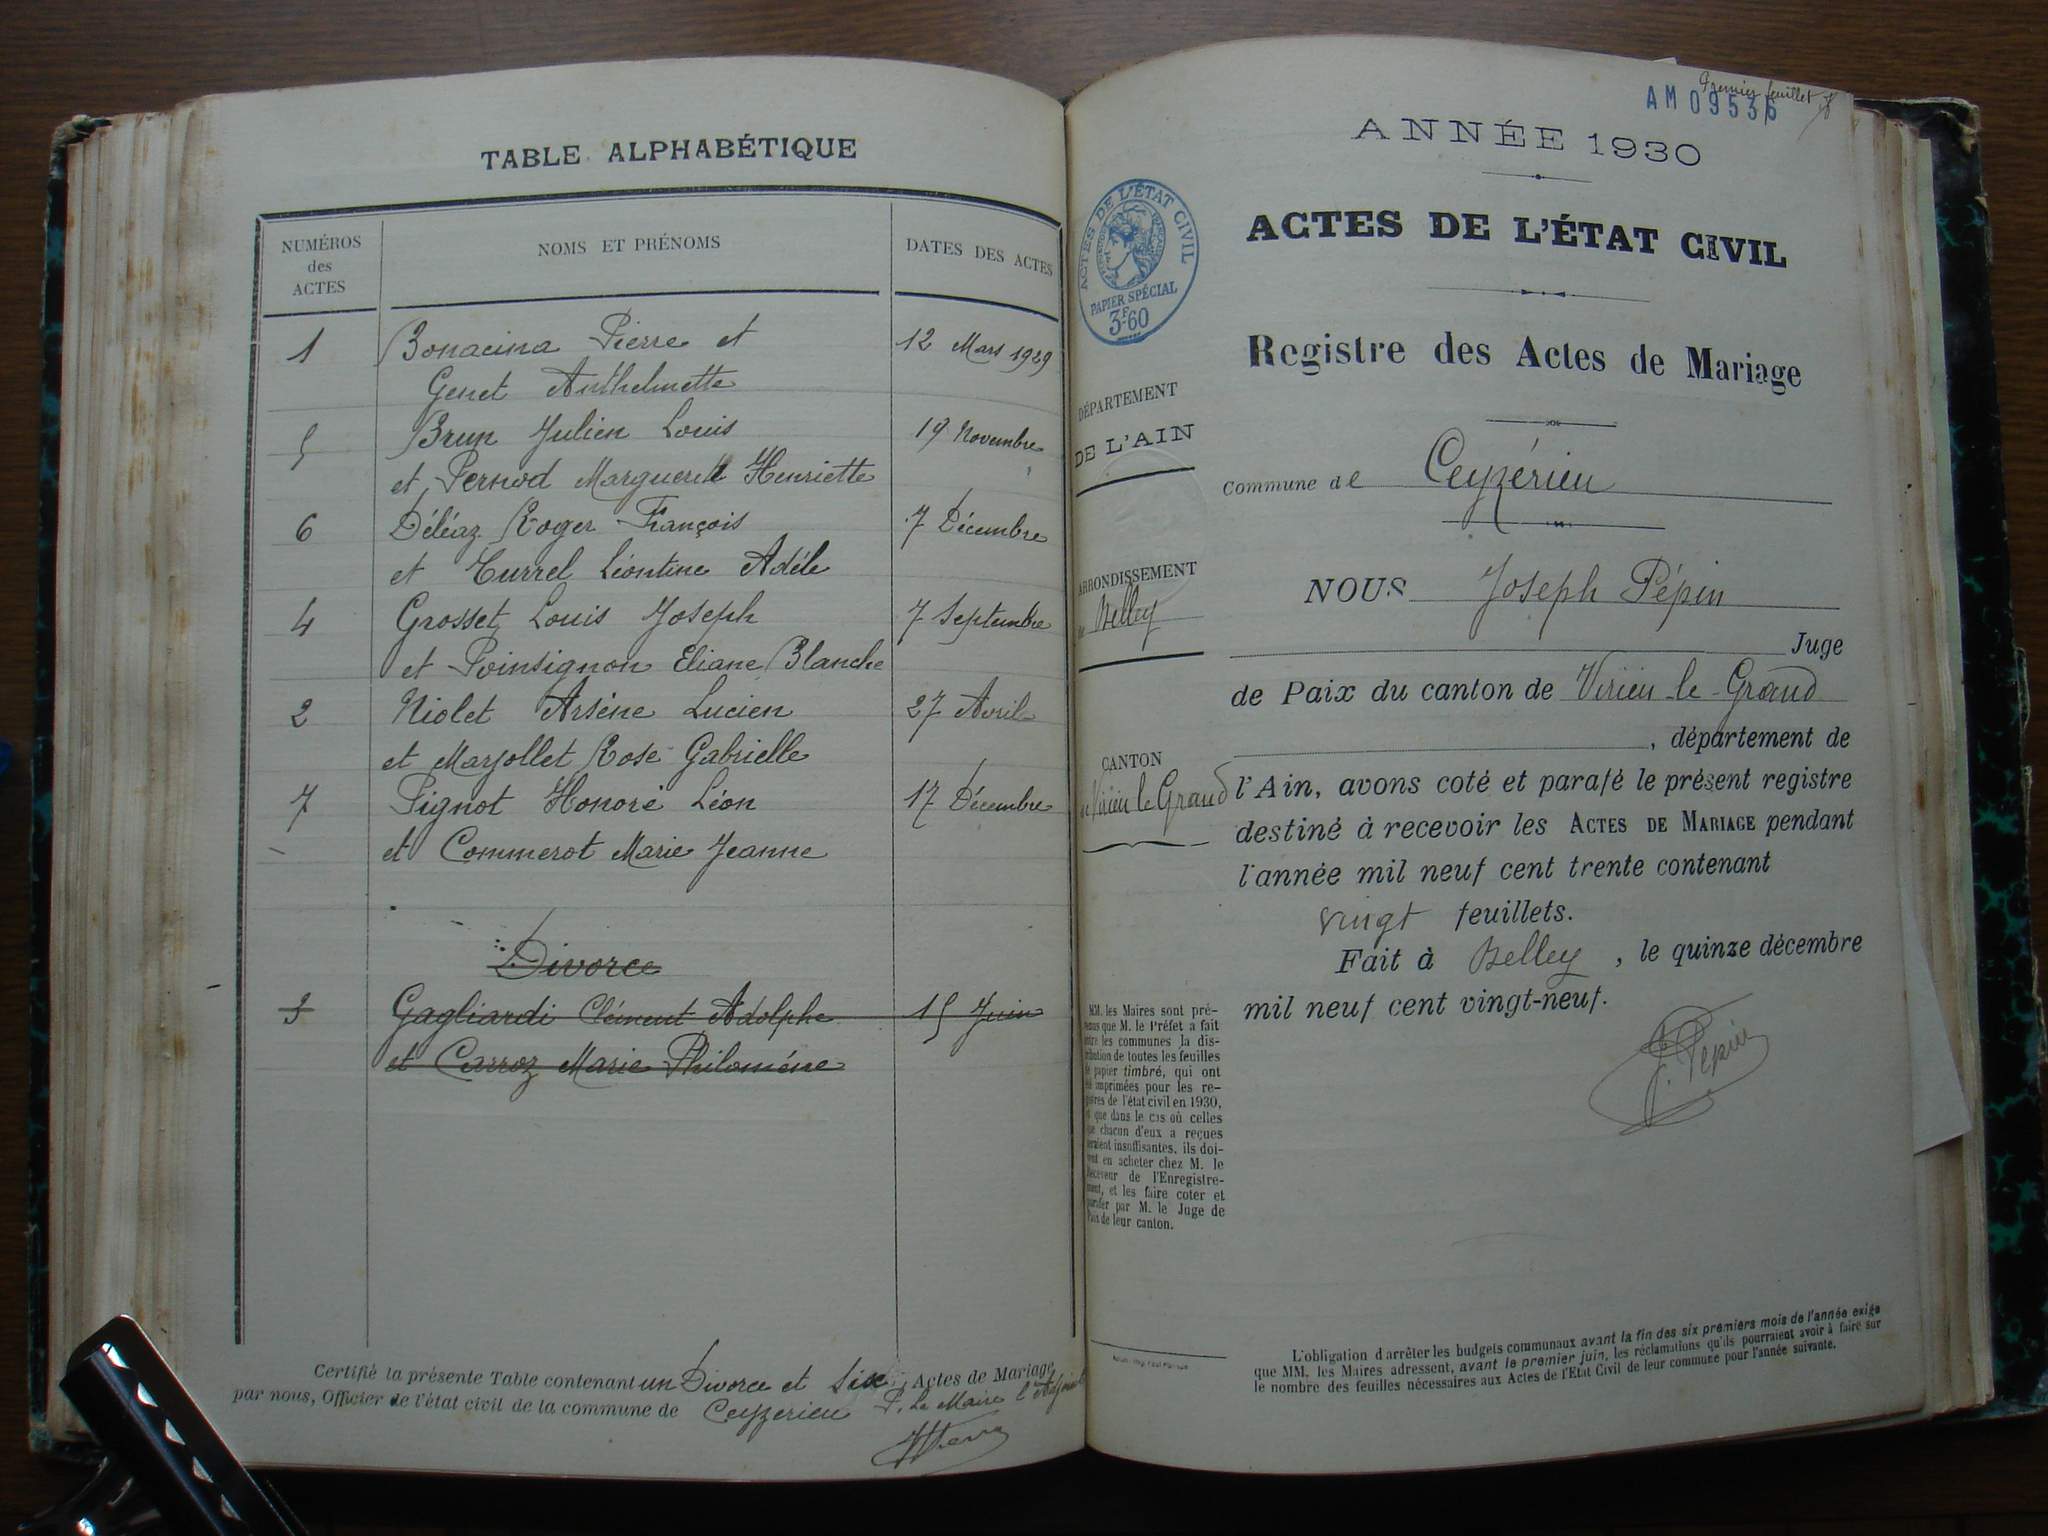 TABLE ALPHABÉTIQUE
NUMÉROS des ACTES
NOMS ET PRÉNOMS
DATES DES ACTES
1 Bonacina Pierre et 12 Mars 1929
Genet Anthelmette
5 Brun Julien Louis 19 Novembre
et Pernod Marguerite Henriette
6 Déléaz Roger François 7 Décembre
et Turrel Léontine Adéle
4 Grosset Louis Joseph 7 Septembre
et Poinsignon Eliane Blanche
2 Niolet Arséne Lucien 27 Avril
et Marjollet Rose Gabrielle
7 Pignot Honoré Léon 17 Décembre
et Commerot Marie Jeanne
Divorce
3 Gagliardi Clément Adolphe 15 Juin
et Carroz Marie Philoméne
Certifié la présente Table contenant un Divorce et six Actes de Mariage,
par nous, Officier de l'état civil de la commune de Ceyzerieu P. Le Maire l'Adjoint
Premier feuillet
AM 09536
ANNÉE 1930
ACTES DE L'ÉTAT CIVIL
PAPIER SPÉCIAL
3F60
ACTES DE L'ÉTAT CIVIL
Registre des Actes de Mariage
DÉPARTEMENT
DE L'AIN
Commune de Ceyzérieu
ARRONDISSEMENT
de Belley
NOUS Joseph Pépin
Juge
de Paix du canton de Virieu-le-Grand
, département de
CANTON
de Virieu le Grand
l'Ain, avons coté et parafé le présent registre
destiné à recevoir les ACTES DE MARIAGE pendant
l'année mil neuf cent trente contenant
vingt feuillets.
Fait à Belley, le quinze décembre
mil neuf cent vingt-neuf.
J. Pépin
MM. les Maires sont pré-
venus que M. le Préfet a fait
entre les communes la dis-
tribution de toutes les feuilles
de papier timbré, qui ont
été imprimées pour les re-
gistres de l'état civil en 1930,
et que dans le cas où celles
que chacun d'eux a reçues
seraient insuffisantes, ils doi-
vent en acheter chez M. le
Receveur de l'Enregistre-
ment, et les faire coter et
parafer par M. le Juge de
Paix de leur canton.
L'obligation d'arrêter les budgets communaux avant la fin des six premiers mois de l'année exige
que MM. les Maires adressent, avant le premier juin, les réclamations qu'ils pourraient avoir à faire sur
le nombre des feuilles nécessaires aux Actes de l'Etat Civil de leur commune pour l'année suivante.